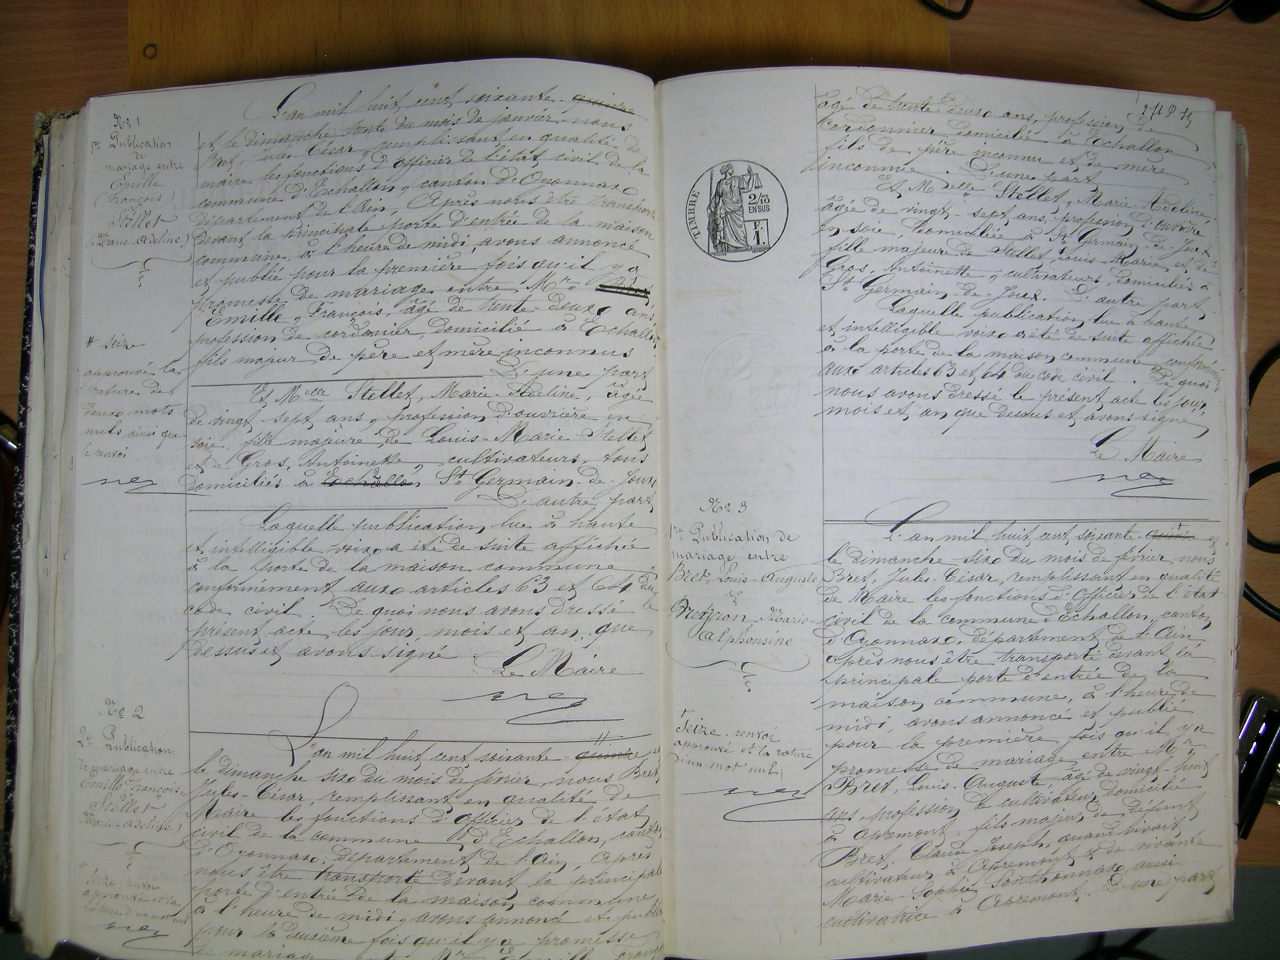 No 1
1re Publication
de
mariage entre
Emille
(François)
et
Stellet
(Marie Adeline)
L'an mil huit cent soixante quinze
et le dimanche trente du mois de janvier, nous
Bret, Jules César, remplissant en qualité de
maire les fonctions d'officier de l'état civil de la
commune d'Echallon, canton d'Oyonnax
département de l'Ain, Après nous être transporté
devant la principale porte d'entrée de la maison
commune, à l'heure de midi, avons annoncé
et publié pour la première fois qu'il y a
promesse de mariage entre Mr
Emille, François, âgé de trente deux ans
profession de cordonier, domicilié à Echallon,
fils majeur de père et mère inconnus
D'une part
# seize
annoncé la
rature de
deux mots
nuls ainsi que
Et Melle Stellet, Marie Adeline, âgée
de vingt-sept ans, profession d'ouvrière en
soie, fille majeure de Louis-Marie Stellet
et de Gros, Antoinette, cultivateurs, tous
domiciliés à Echallon St Germain-de-Joux
D'autre part
Laquelle publication, lue à haute
et intelligible voix a été de suite affichée
à la porte de la maison commune
conformément aux articles 63 et 64 du
code civil. De quoi nous avons dressé le
présent acte les jour, mois et an que
dessus et avons signé
Le Maire
No 2
2e Publication
de mariage entre
Emille François
et
Stellet
(Marie-Adeline)
L'an mil huit cent soixante # quinze et
le dimanche six du mois de février, nous Bret,
Jules-César, remplissant en qualité de
Maire les fonctions d'Officier de l'état
civil de la commune d'Echallon, canton
d'Oyonnax, département de l'Ain, Après
nous être transporté devant la principale
porte d'entrée de la maison commune
à l'heure de midi, avons annoncé et publié
pour la deuxième fois qu'il y a promesse
de mariage entre Mr Emille
âgé de trente deux ans, profession de
cordonnier domicilié à Echallon
fils de père inconnu et de mère
inconnue. D'une part
Et Melle Stellet, Marie Adeline,
âgée de vingt-sept ans, profession d'ouvrière
en soie, domiciliée à St Germain de Joux
fille majeure de Stellet Louis Marie, et de
Gros, Antoinette, cultivateurs, domiciliés à
St Germain de Joux. D'autre part
Laquelle publication, lue à haute
et intelligible voix a été de suite affichée
à la porte de la maison commune conformément
aux articles 63 et 64 du code civil. De quoi
nous avons dressé le présent acte les jour,
mois et an que dessus et avons signé
Le Maire
TIMBRE
2/10
EN SUS
1 F.
No 3
1re Publication de
mariage entre
Bret, Louis-Auguste
et
Marie-
Alphonsine
† Seize renvoi
approuvé et la rature
d'un mot nul
L'an mil huit cent soixante † quinze et
le dimanche six du mois de février nous
Bret, Jules-César, remplissant en qualité
de Maire les fonctions d'Officier de l'état
civil de la commune d'Echallon, canton
d'Oyonnax, département de l'Ain
après nous être transporté devant la
principale porte d'entrée de la
maison commune, à l'heure de
midi, avons annoncé et publié
pour la première fois qu'il y a
promesse de mariage entre Mr
Bret, Louis-Auguste, âgé de vingt-huit
ans, profession de cultivateur domicilié
à Apremont, fils majeur de défunt
Bret, Claude-Joseph, quand vivait
cultivateur à Apremont, et de vivante
Marie-Sophie Sonthonnax aussi
cultivatrice à Apremont. D'une part